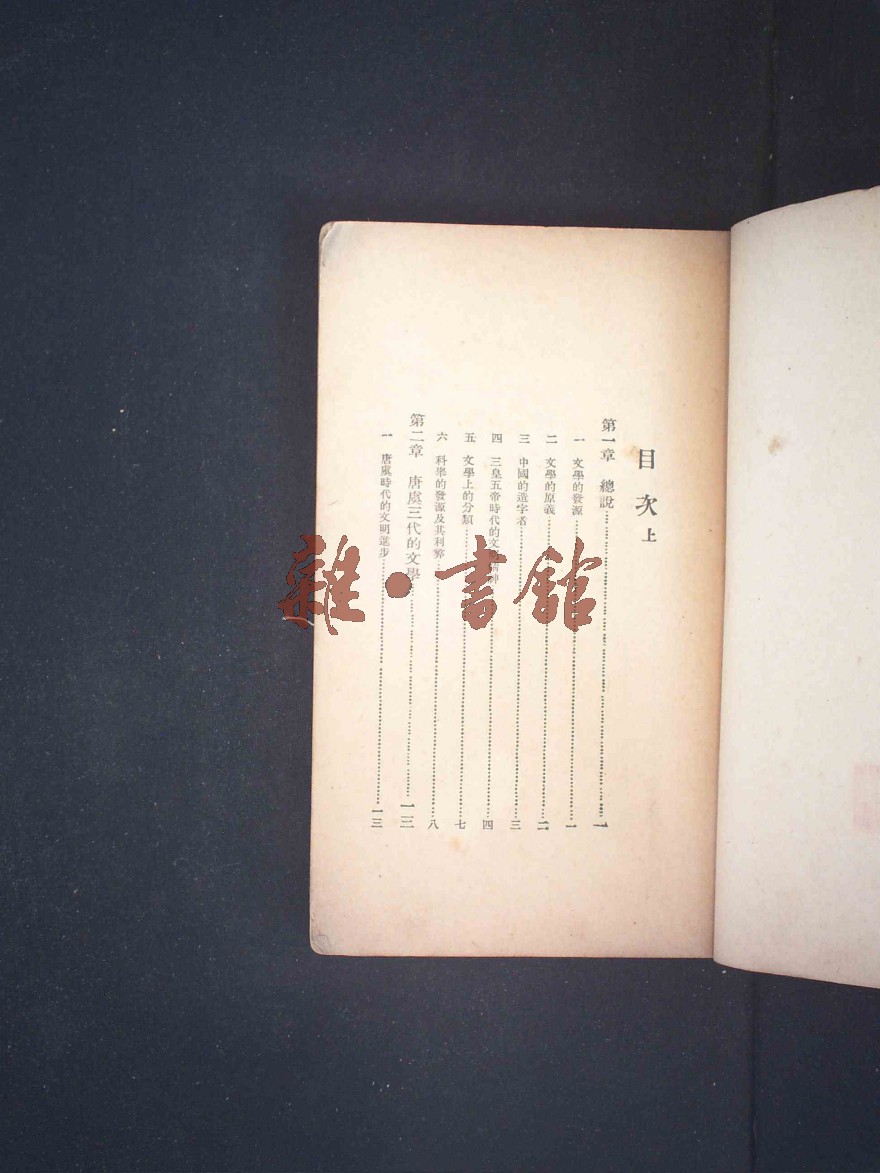 目次上
第一章 總說……一
一 文學的發源……一
二 文學的原義……二
三 中國的造字者……三
四 三皇五帝時代的文……四
五 文學上的分類……七
六 科舉的發源及其利弊……八
第二章 唐虞三代的文學……一三
一 唐虞時代的文明進步……一三
雜·書館